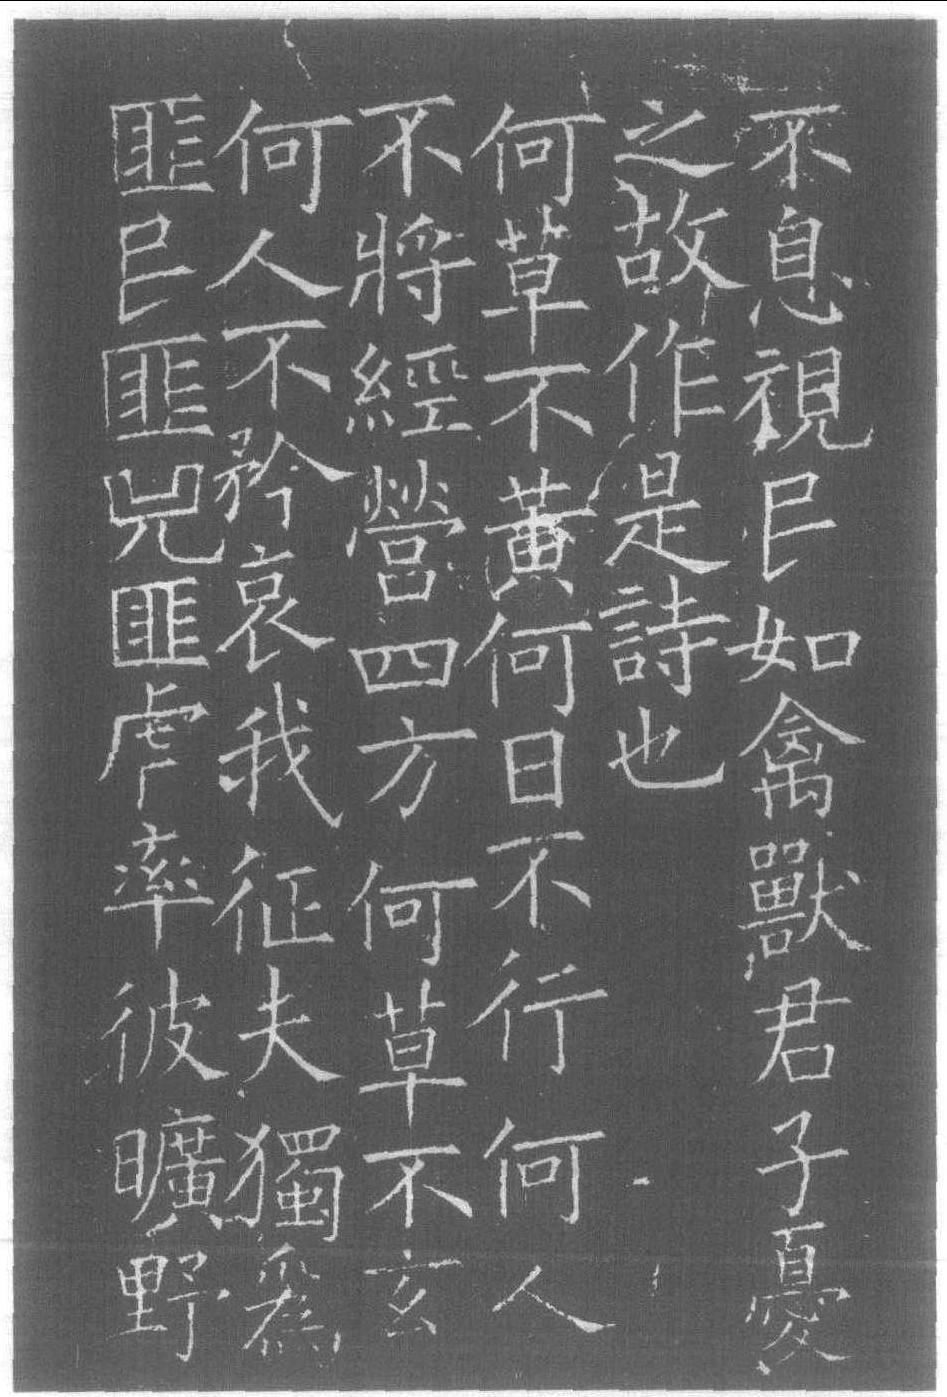 不息視民如禽獸君子憂
之故作是詩也
何草不黃何日不行何人
不將經營四方何草不玄
何人不矜哀我征夫獨爲
匪民匪兕匪虎率彼曠野